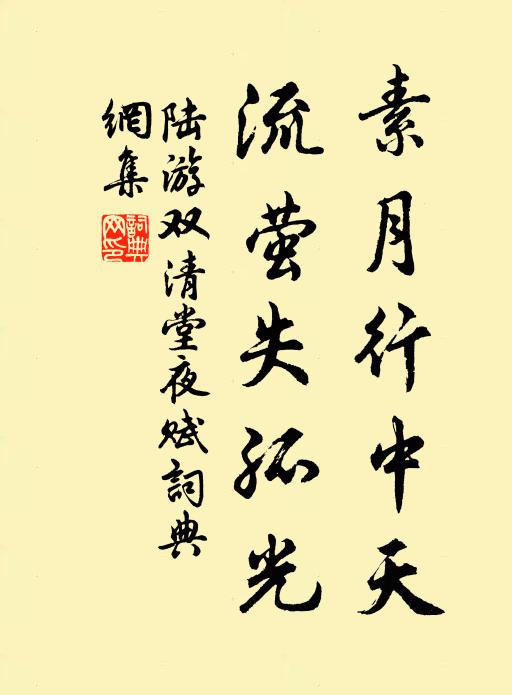 素月行中天
流萤失孤光
陆游双清堂夜赋詞典
網集
詞典
网印